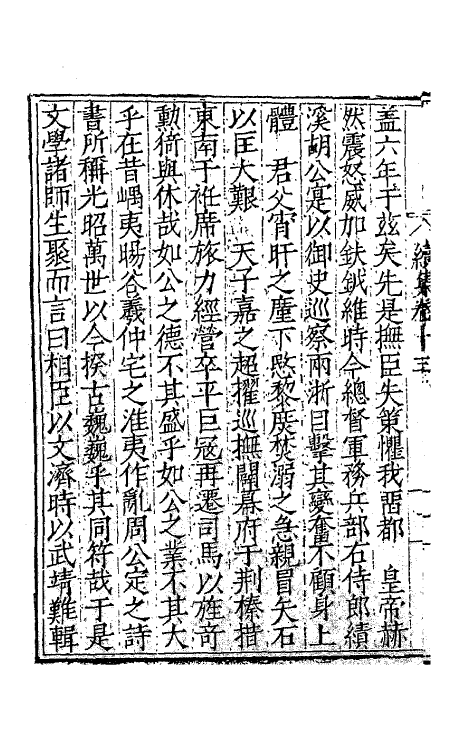 盖六年于玆矣先是撫臣失策懼我留都　皇帝赫
然震怒威加鈇鉞維時今總督軍務兵部右侍郎績
溪胡公寔以御史巡察兩浙目擊其變奮不顧身上
體　君父宵旰之廑下愍黎庶焚溺之急親冒矢石
以匡大艱　天子嘉之超擢巡撫開幕府于荆榛措
東南于袵席旅力經營卒平巨寇再遷司馬以旌奇
勳猗與休哉如公之德不其盛乎如公之業不其大
乎在昔嵎夷暘谷羲仲宅之淮夷作亂周公定之詩
書所稱光昭萬世以今揆古巍巍乎其同符哉于是
文學諸師生聚而言曰相臣以文濟時以武靖難輯
續集卷十五